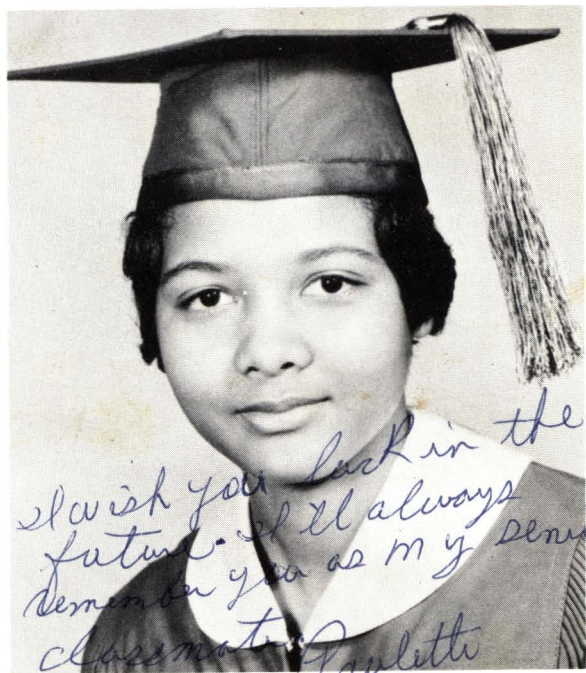 I wish you luck in the
future. I'll always
remember you as my seni
classmate Paulette